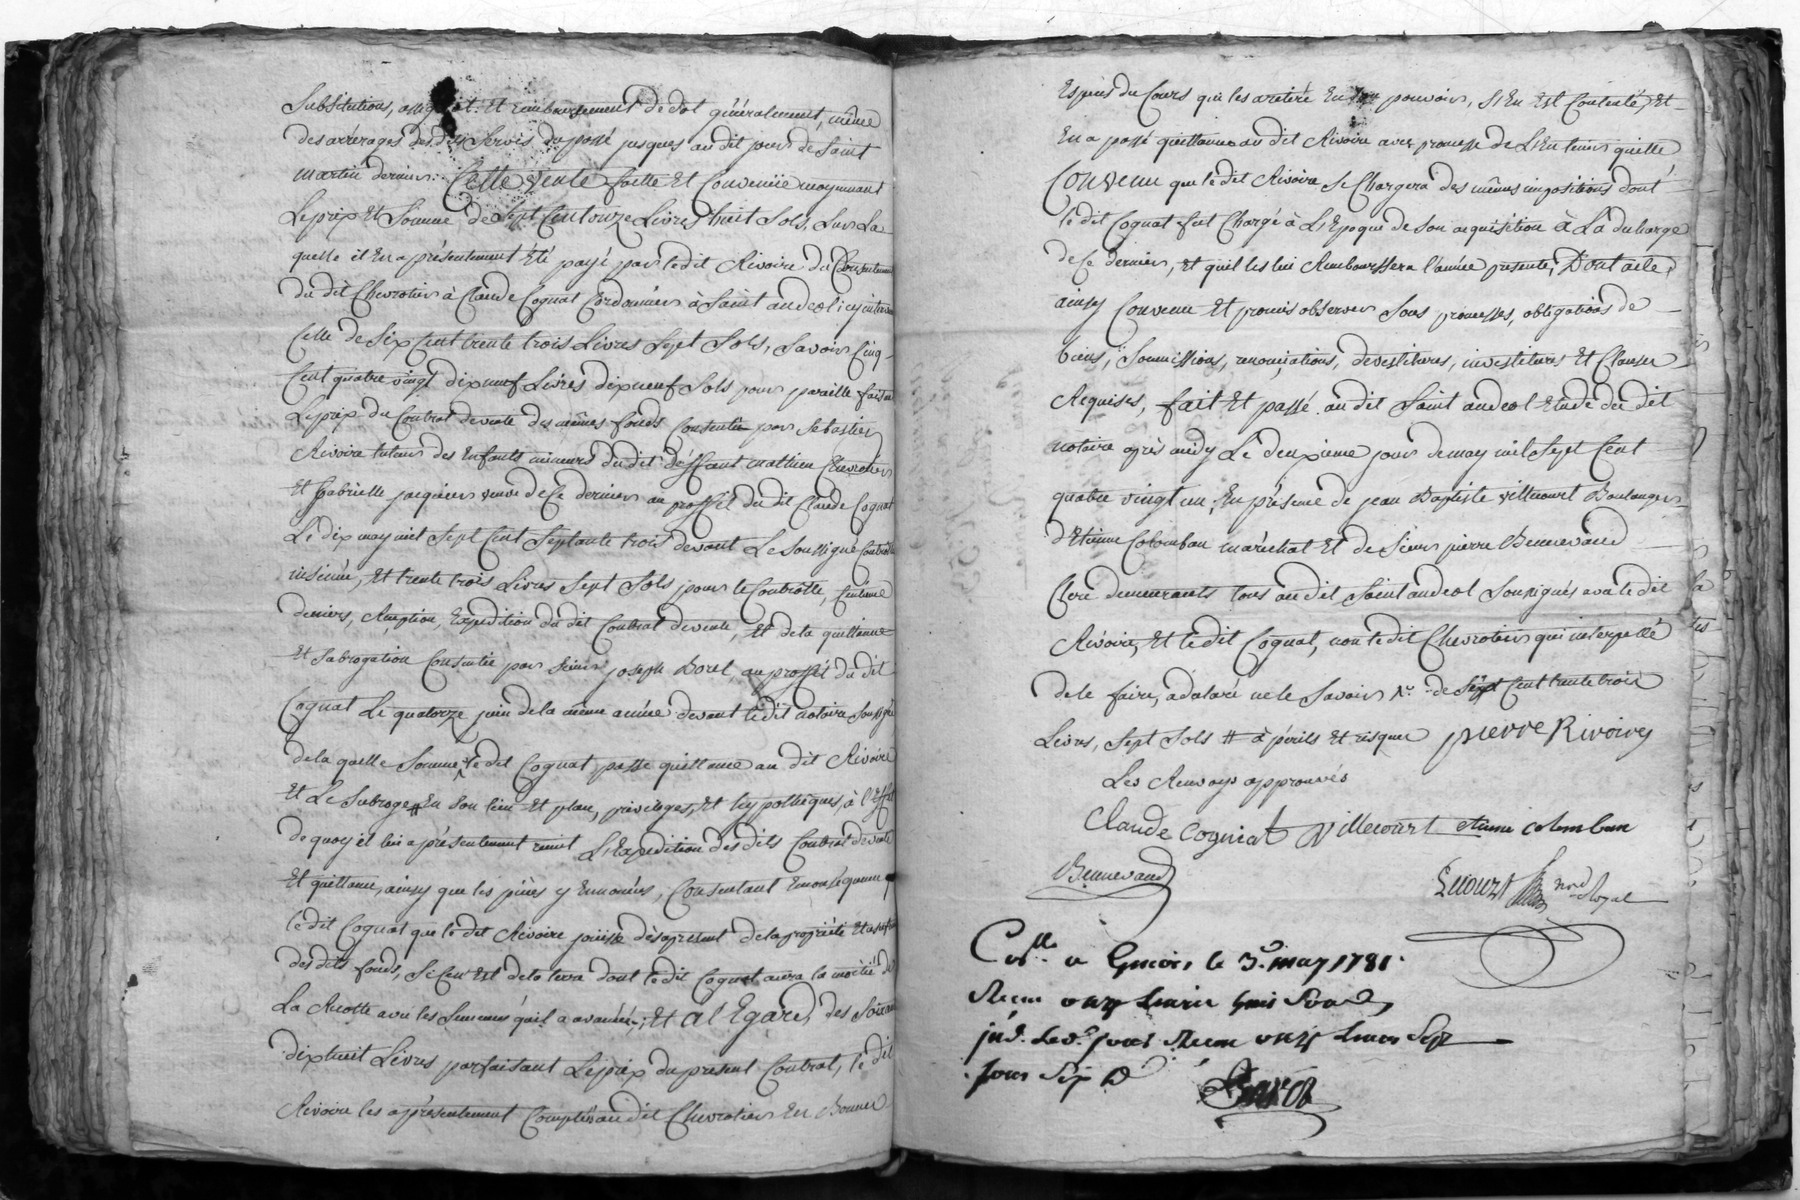 Substitutions, et remboursement de dot généralement, même
des arrérages des dits Servis du passé jusques au dit jour de Saint
martin dernier: Cette Vente faitte Et Convenüe moyennant
Le prix Et Somme de Sept Cent onze Livres huit Sols, Sur La
quelle il En a présentement Eté payé par le dit Rivoire du Consentement
du dit Chevrotier à Claude Cognat Cordonnier à Saint andeol icy
Celle de Six Cent trente trois Livres Sept Sols, Savoir Cinq
Cent quatre vingt dix neuf Livres dix neuf Sols pour pareille faisant
Le prix du Contrat de vente des mêmes fonds Consentie par Sebastien
Rivoire tuteur des Enfants mineurs du dit deffunt mathieu Chevrotier
Et Gabrielle jacquier veuve de Ce dernier au proffit du dit Claude Cognat
Le dix may mil Sept Cent Septante trois devant Le Soussigné Controllé
insinué, Et trente trois Livres Sept Sols pour le Controlle, Centieme
deniers, Reception, Expedition du dit Contrat de vente, Et de la quittance
Et Subrogation Consentie par Sieur joseph Borel au proffit du dit
Cognat Le quatorze juin de la même année devant le dit notaire Soussigné
de la quelle Somme le dit Cognat passe quittance au dit Rivoire
Et Le Subroge # En Son lieu Et place, privileges, Et hypothèques, à l'Effet
de quoy il lui a présentement remit L'Expedition des dits Contrat de vente
Et quittance, ainsy que les pièces y Enoncées, Consentant En conséquence
le dit Cognat que le dit Rivoire jouisse dès apresent de la propriété Et
des dits fonds, Si Ce n'Est de la terre dont le dit Cognat aura la moitié de
La Recolte avec les Semences qu'il a avancées; Et al Egard des Soixante
dix huit Livres parfaisant Le prix du présent Contrat, le dit
Rivoire les a présentement Comptés au dit Chevrotier En Bonnes
Espèces du Cours qui les a retiré En Son pouvoir, S'En Est Contenté, Et
En a passé quittance au dit Rivoire avec promesse de L'En tenir quitte
Convenu que le dit Rivoire Se Chargera des mêmes impositions dont
le dit Cognat fut Chargé à L'Epoque de Son acquisition à La decharge
de Ce dernier, Et qu'il les lui Remboursera l'année presente, Dont acte,
ainsy Convenu Et promis observer Sous promesses, obligations de
biens, Soumissions, renonciations, devestitures, investitures Et Clauses
Requises, fait Et passé au dit Saint andeol Etude du dit
notaire après midy Le deuxieme jour de may mil Sept Cent
quatre vingt un, En présence de jean Baptiste villecourt Boulanger
d'Etienne Colomban maréchal Et de Sieur pierre Bennevaud
Clerc demeurants tous au dit Saint andeol Soussignés avec le dit
Rivoire, Et le dit Cognat, non le dit Chevrotier qui interpellé
de le faire, a déclaré ne le Savoir de Six Cent trente trois
Livres, Sept Sols # à périls Et risques pierre Rivoirej
Les Renvoys approuvés
Claude Cogniat Villecourt etienne colomban
Bennevaud
Royal
Collé a le 3. may 1781.
Reçu onze livres
Reçu onze livres Sept
Sous Six D